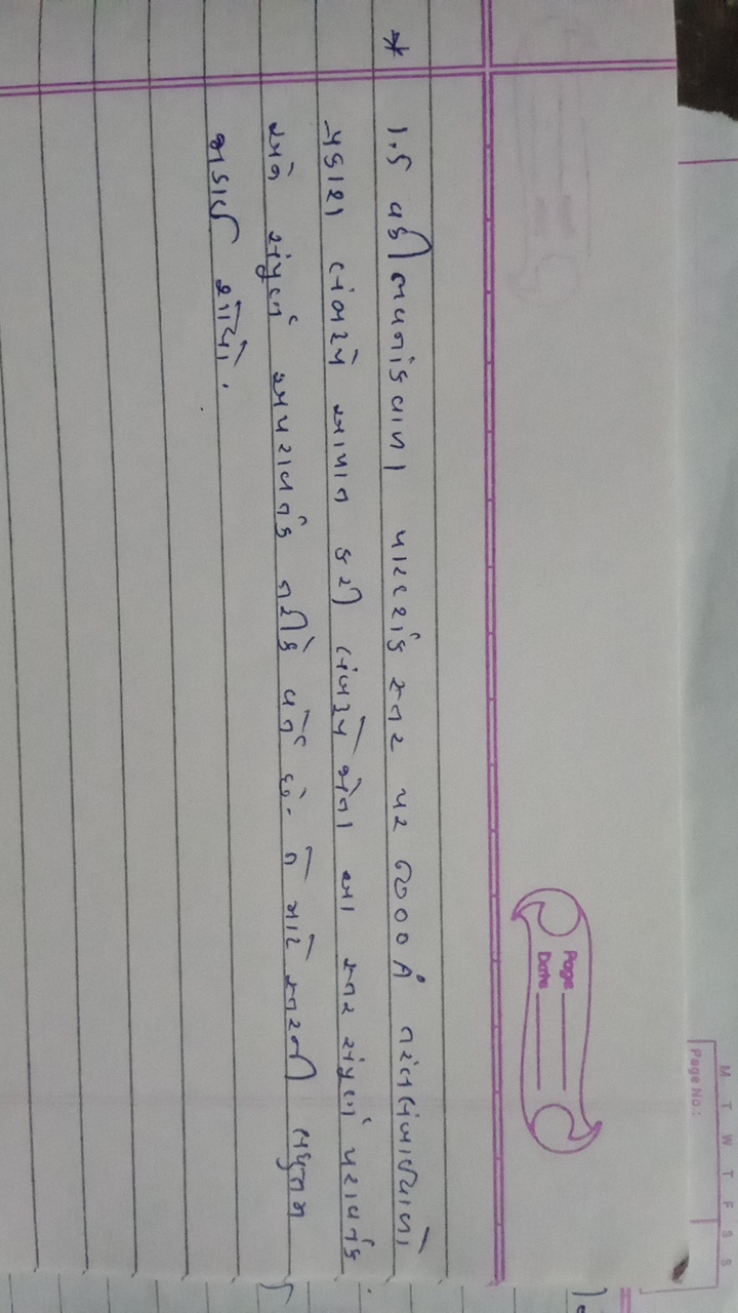 * 1.5 વક્રીભવનાંકવાળા પારદર્શક સ્તર પર 6000 Å તરંગલંબાઈવાળો
પ્રકાશ લંબરૂપે આપાત કરી લંબરૂપે જોતા આ સ્તર સંપૂર્ણ પરાવર્તક
અને સંપૂર્ણ અપરાવર્તક તરીકે વર્તે છે. તે માટે સ્તરની લઘુત્તમ
જાડાઈ શોધો.
Page
Date
Page No.:
M T W T F S S